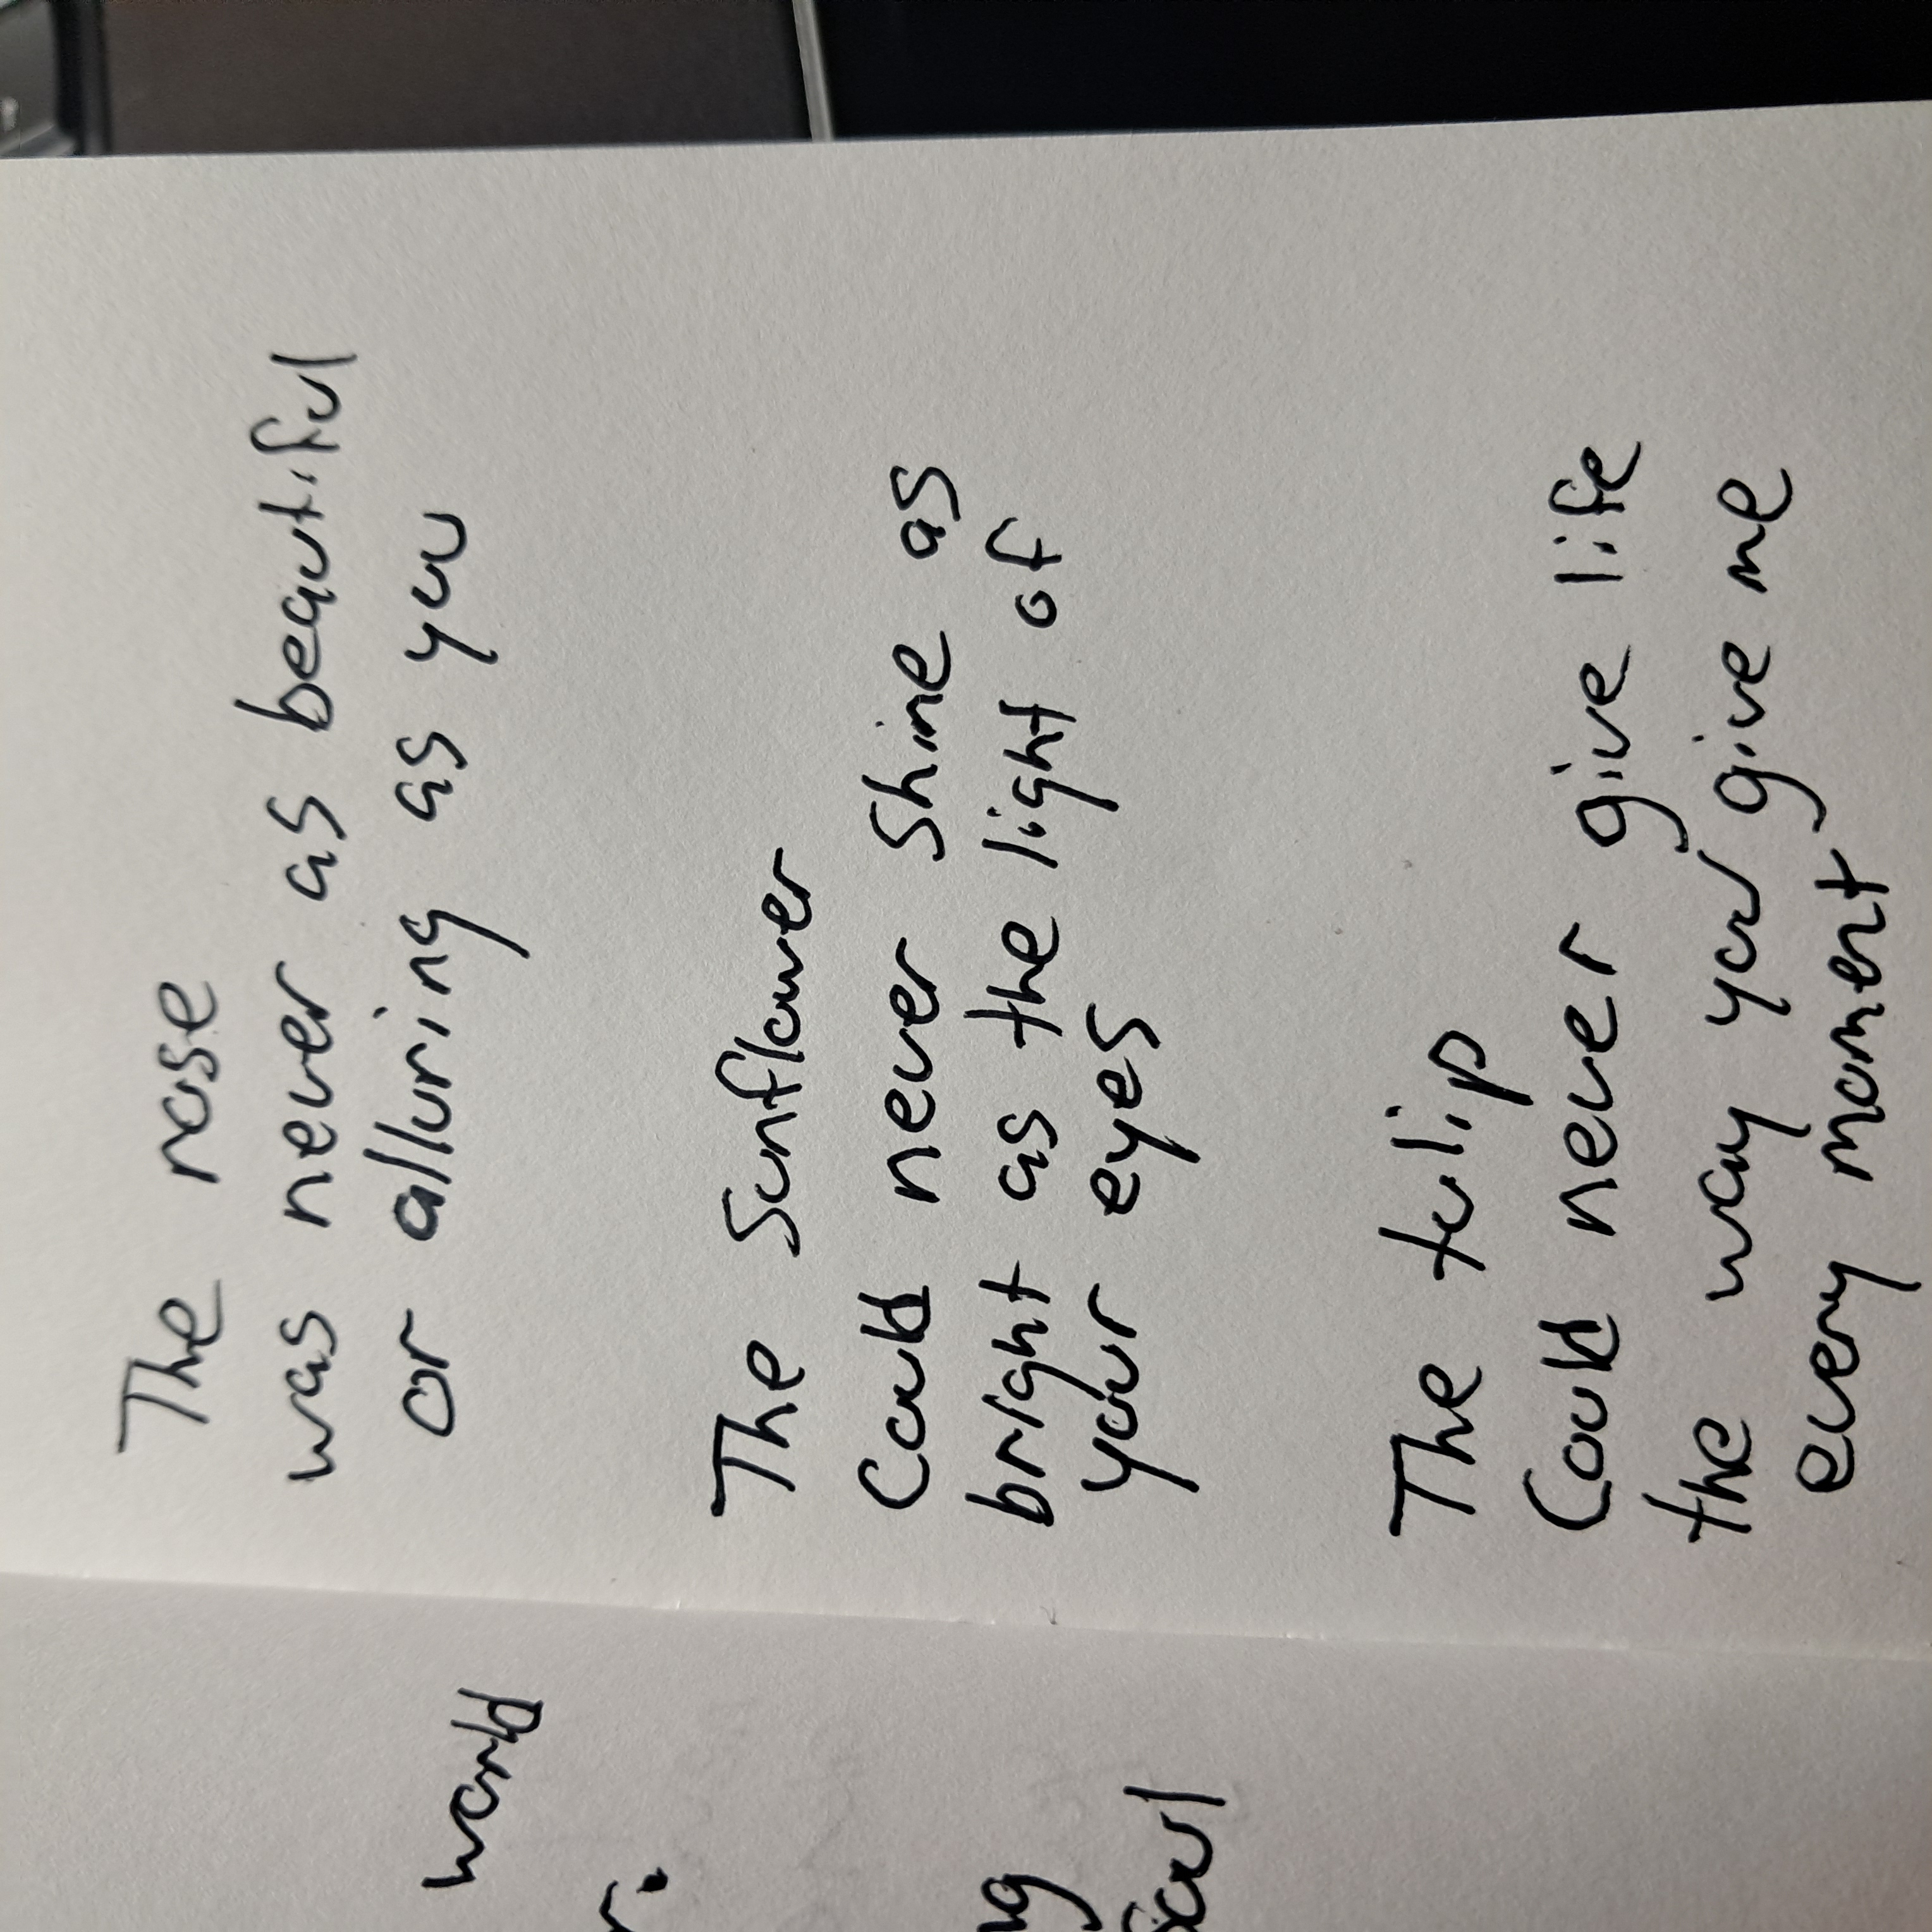 world
r.
ng
Soul
The rose
was never as beautiful
or alluring as you
The Sunflower
Could never Shine as
bright as the light of
your eyes
The tulip
Could never give life
the way you give me
every moment